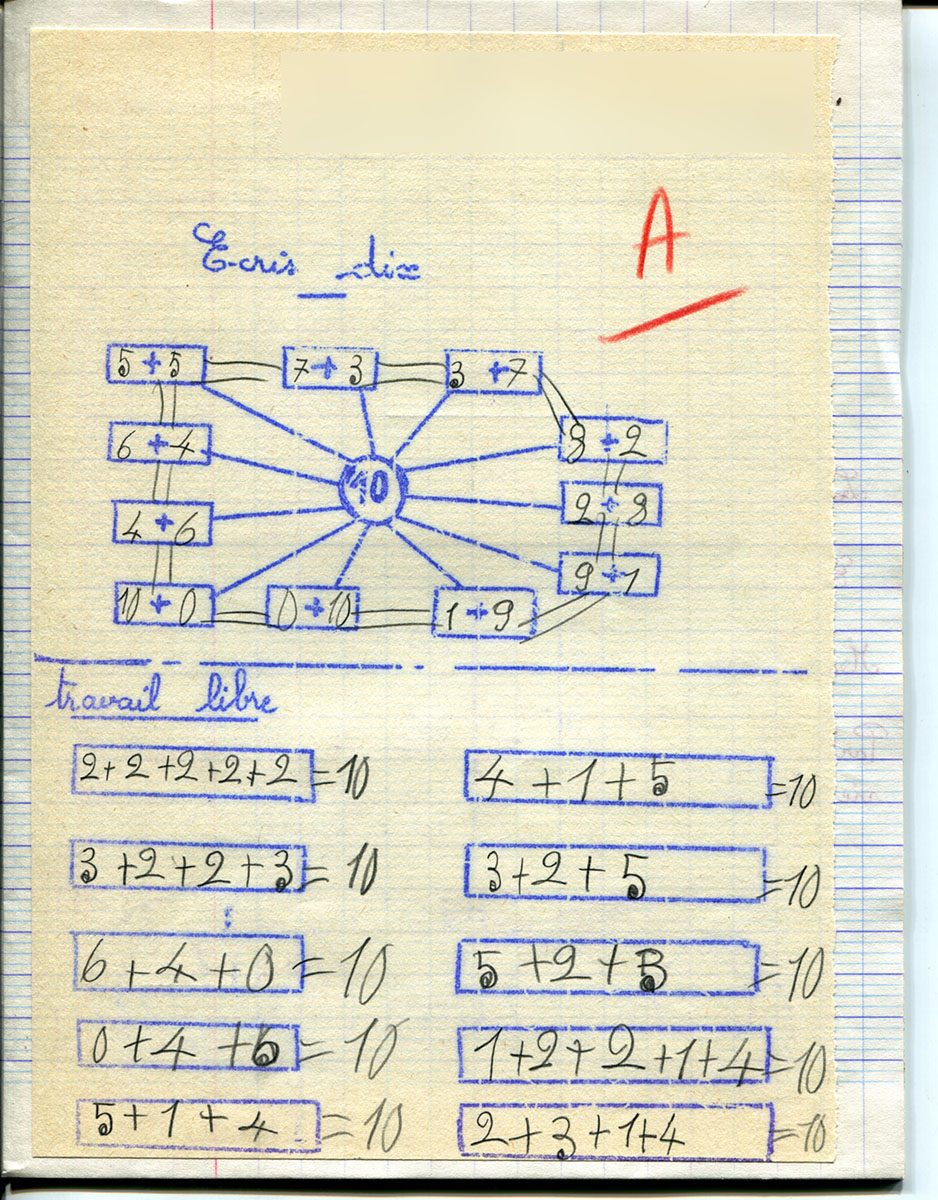 A
Ecris dix
5 + 5 7 + 3 3 + 7
6 + 4 10 8 + 2
4 + 6 2 + 8
10 + 0 0 + 10 1 + 9 9 + 1
travail libre
2+2+2+2+2 = 10 4+1+5 = 10
3+2+2+3 = 10 3+2+5 = 10
6+4+0 = 10 5+2+3 = 10
0+4+6 = 10 1+2+2+1+4 = 10
5+1+4 = 10 2+3+1+4 = 10